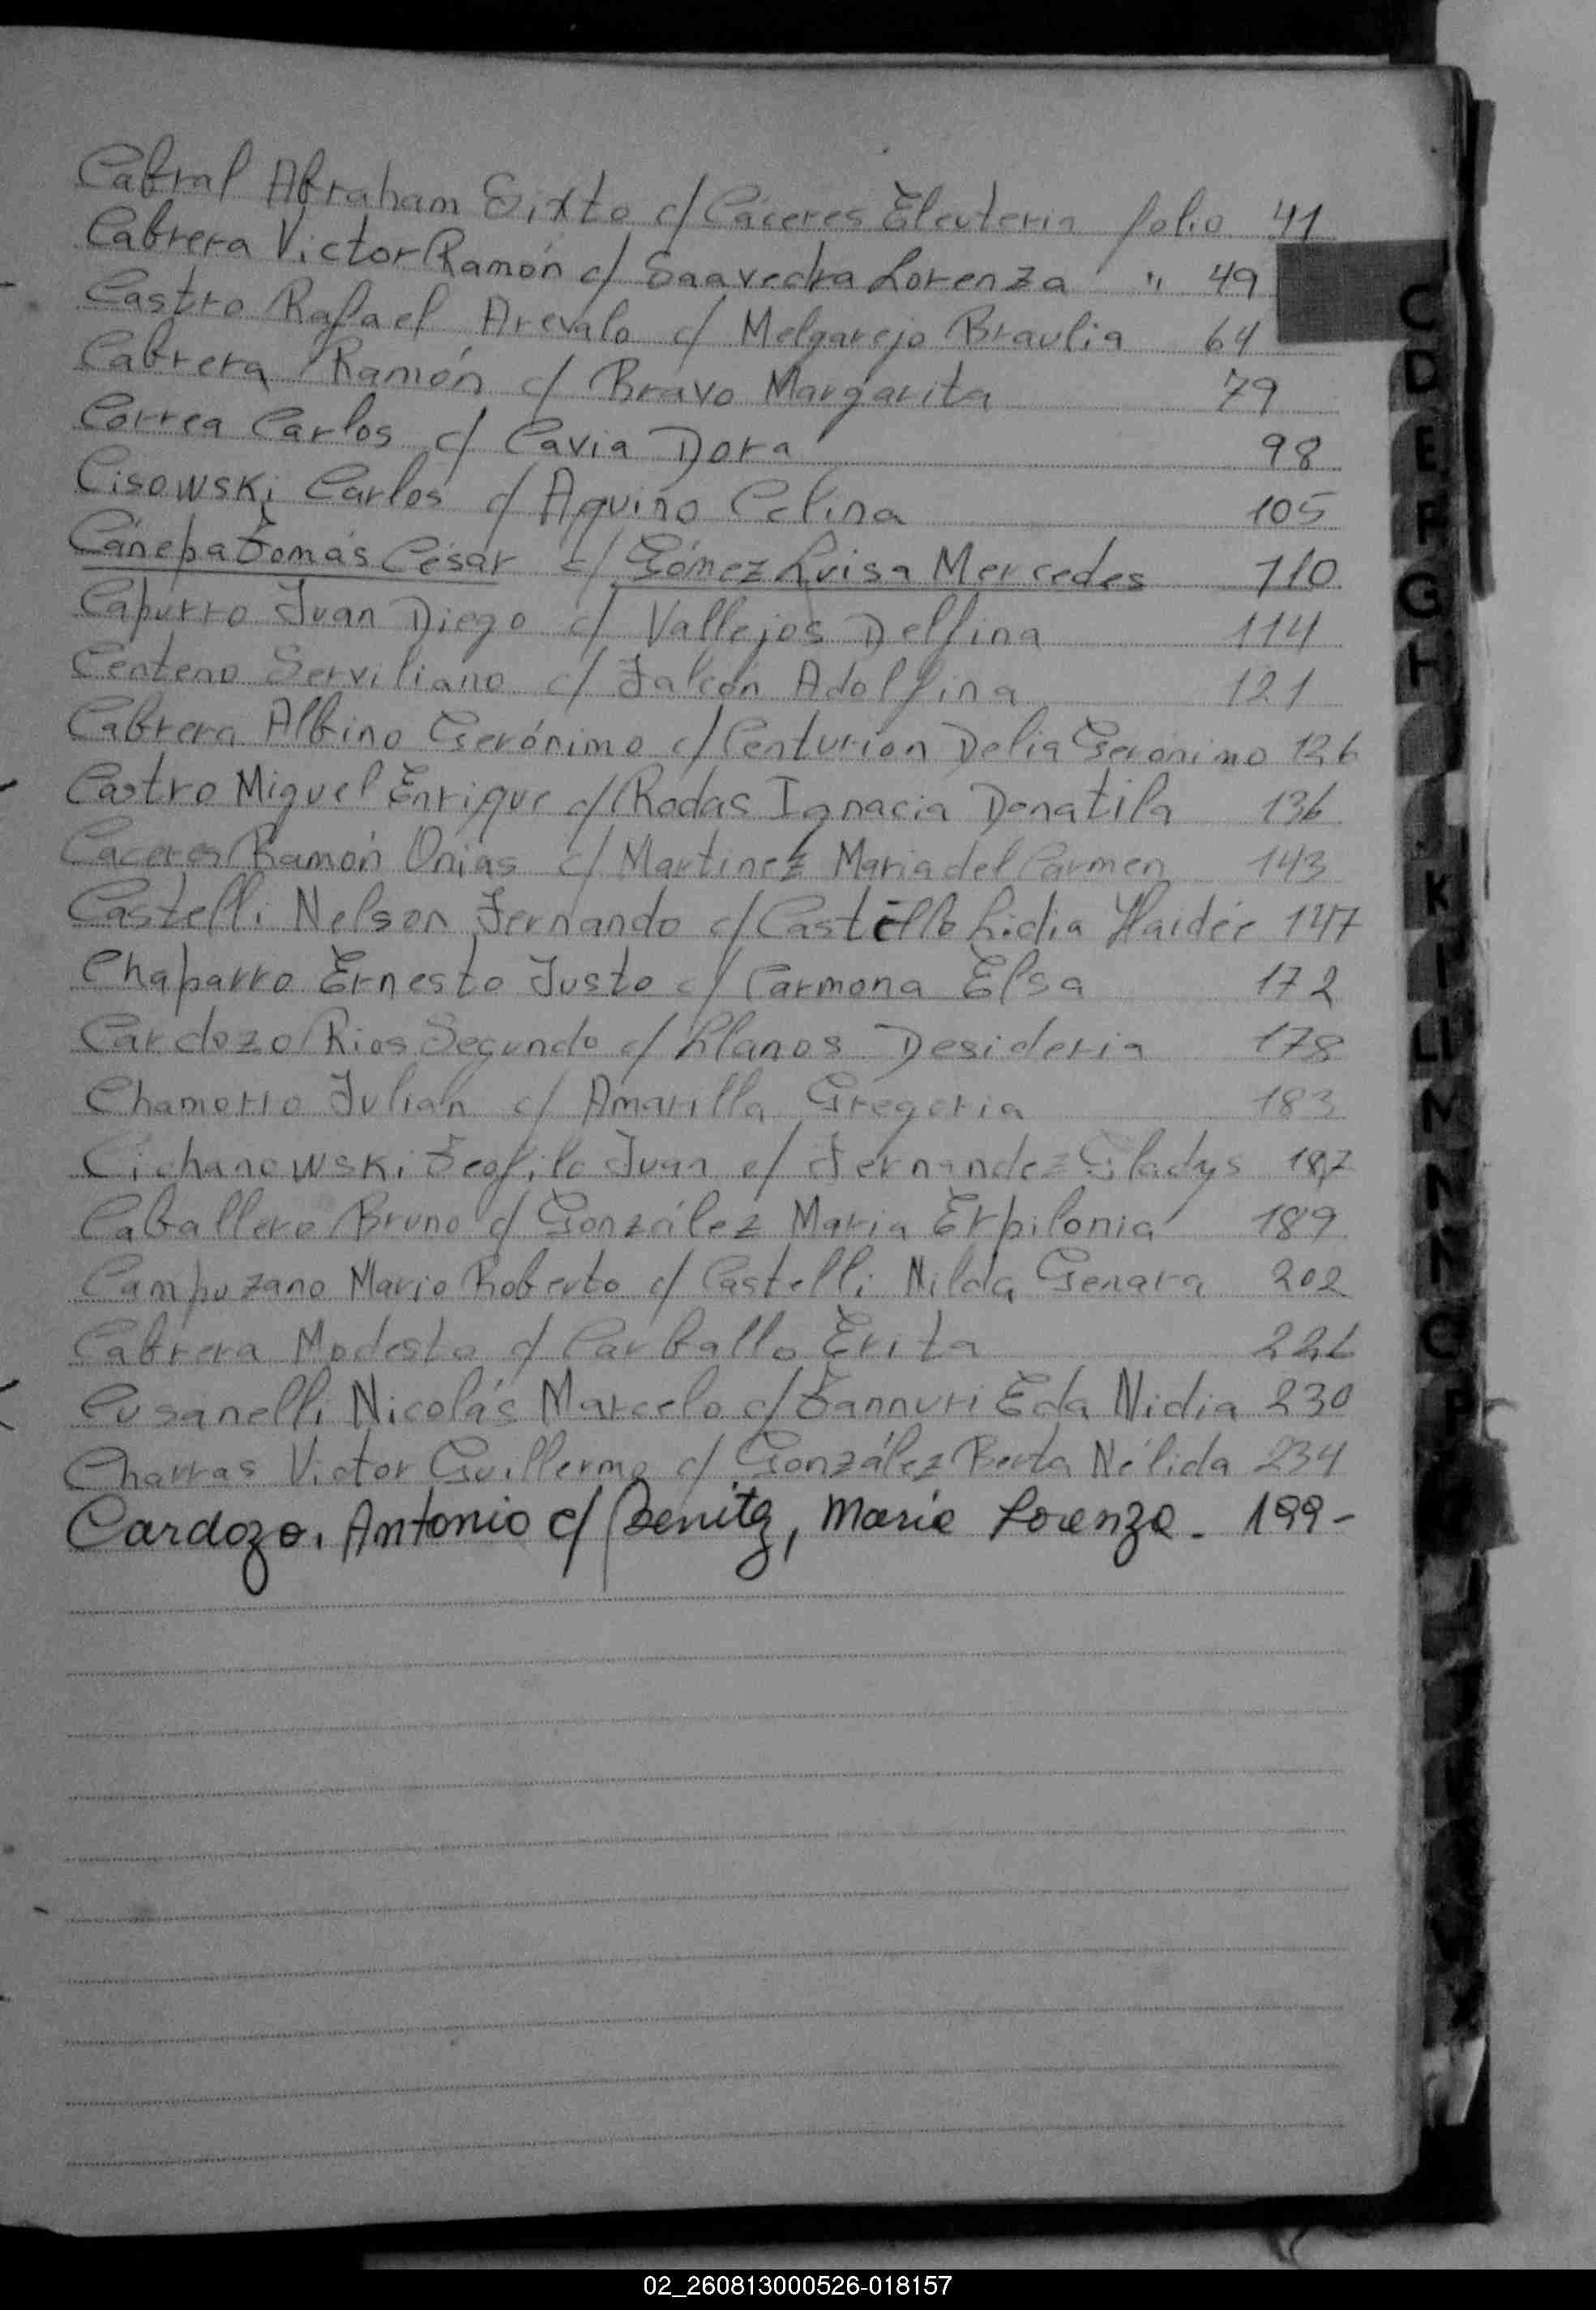 Cabral Abraham Sixto c/ Cáceres Eleuteria folio 41
Cabrera Victor Ramón c/ Saavedra Lorenza " 49
Castro Rafael Arevalo c/ Melgarejo Braulia 64
Cabrera Ramón c/ Bravo Margarita 79
Correa Carlos c/ Cavia Dora 98
Cisowski Carlos c/ Aquino Celina 105
Cánepa Tomás César c/ Gómez Luisa Mercedes 110
Capurro Juan Diego c/ Vallejos Delfina 114
Centeno Serviliano c/ Falcón Adolfina 121
Cabrera Albino Gerónimo c/ Centurion Delia Gerónimo 126
Castro Miguel Enrique c/ Rodas Ignacia Donatila 136
Caceres Ramón Onias c/ Martinez Maria del Carmen 143
Castelli Nelson Fernando c/ Castello Lidia Haidée 147
Chaparro Ernesto Justo c/ Carmona Elsa 172
Cardozo Rios Segundo c/ Llanos Desideria 178
Chamorro Julián c/ Amarilla Gregoria 183
Cichanowski Teofilo Juan c/ Fernandez Gladys 187
Caballero Bruno c/ González Maria Erpilonia 189
Campuzano Mario Roberto c/ Castelli Nilda Genara 202
Cabrera Modesto c/ Carballo Erita
Cusanelli Nicolás Marcelo c/ Tannuri Eda Nidia 230
Charras Victor Guillermo c/ González Berta Nélida 234
Cardozo, Antonio c/ Benitz, Maria Lorenza - 199-
C
D
E
F
G
H
K
L
Ll
M
N
Ñ
O
P
02_260813000526-018157